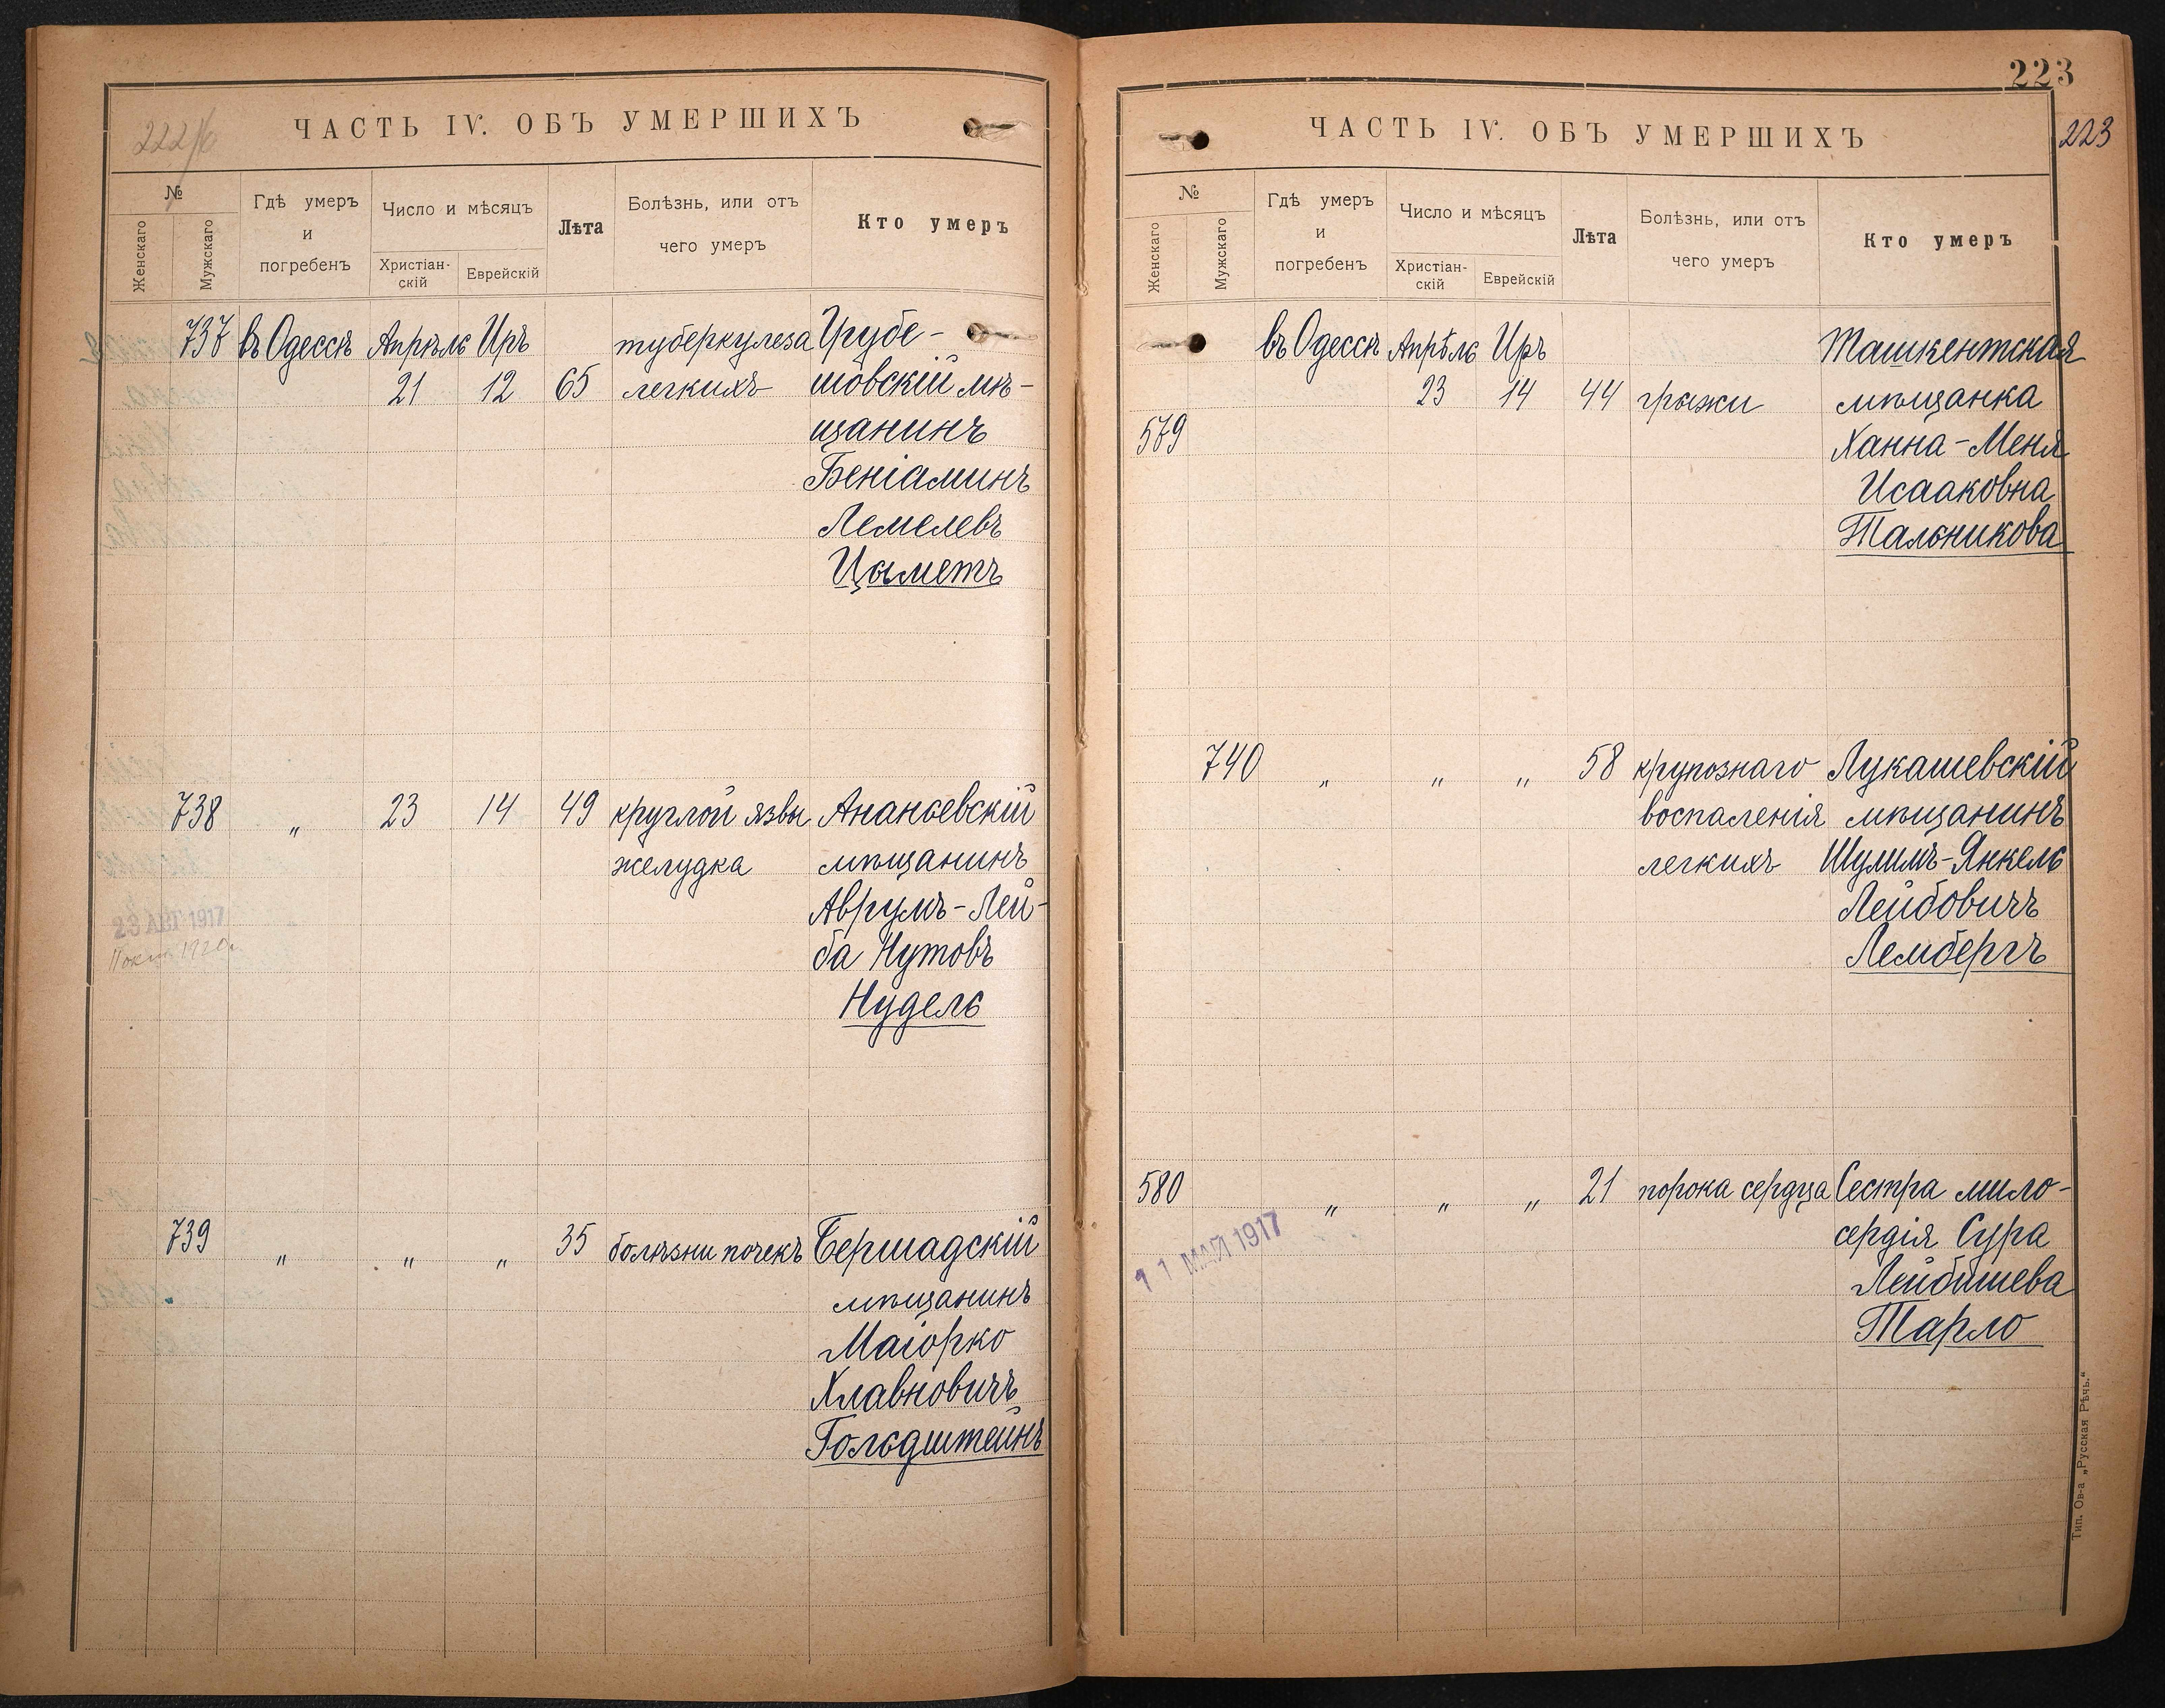 222/б
ЧАСТЬ IV. ОБЪ УМЕРШИХЪ
№
Женскаго
Мужскаго
Гдѣ умеръ
и
погребенъ
Число и мѣсяцъ
Христіан-
скій
Еврейскій
Лѣта
Болѣзнь, или отъ
чего умеръ
Кто умеръ
737 въ Одессѣ Апрѣль Иръ туберкулеза Грубе-
21 12 65 легкихъ шовскій мѣ-
щанинъ
Беніаминъ
Лемелевъ
Цыметъ
738 „ 23 14 49 круглой язвы Ананьевскій
желудка мѣщанинъ
Аврумъ-Лей-
ба Нутовъ
Нудель
23 АВГ 1917
1920г.
739 „ „ „ 35 болѣзни почекъ Бершадскій
мѣщанинъ
Маіорко
Хлавновичъ
Гольдштейнъ
223
223
ЧАСТЬ IV. ОБЪ УМЕРШИХЪ
№
Женскаго
Мужскаго
Гдѣ умеръ
и
погребенъ
Число и мѣсяцъ
Христіан-
скій
Еврейскій
Лѣта
Болѣзнь, или отъ
чего умеръ
Кто умеръ
въ Одессѣ Апрѣль Иръ Ташкентская
23 14 44 грыжи мѣщанка
579 Ханна-Меня
Исааковна
Тальникова
740 „ „ „ 58 крупознаго Лукашевскій
воспаленія мѣщанинъ
легкихъ Шулимъ-Янкель
Лейбовичъ
Лембергъ
580 „ „ „ 21 порока сердца Сестра мило-
сердія Сура
Лейбишева
Тарло
11 МАЙ 1917
Тип. Ов-а „Русская Рѣчь.“